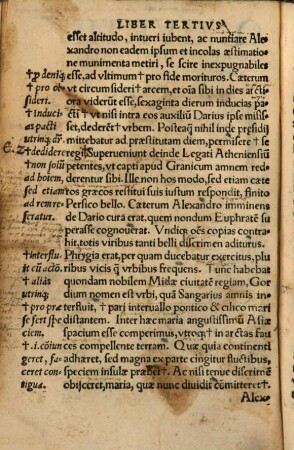 LIBER TERTIVS
esset altitudo, intueri iubent, ac nuntiare Ale-
xandro non eadem ipsum et incolas æstimatio-
ne munimenta metiri, se scire inexpugnabiles
esse, ad vltimum† pro fide morituros. Cæterum
vt circumsideri† arcem, et oĩa sibi in dies arcti-
ora viderũt esse, sexaginta dierum inducias pa-
cti† vt nisi intra eos auxiliũ Darius ipse misis-
set, dederẽt† vrbem. Posteaq̃ nihil inde presidij
mittebatur ad præstitutam diem, permisere† se
regi. Superueniunt deinde Legati Atheniensiũ
petentes, vt capti apud Granicum amnem red-
derentur sibi. Ille non hos modo, sed etiam cæte-
ros græcos restitui suis iussum respondit, finito
Persico bello. Cæterum Alexandro imminens
de Dario cura erat, quem nondum Euphratẽ su-
perasse cognouerat. Vndiq; oẽs copias contra-
hit, totis viribus tanti belli discrimen aditurus.
Phrygia erat, per quam ducebatur exercitus, plu-
ribus vicis q̃ vrbibus frequens. Tunc habebat
quondam nobilem Midæ ciuitatẽ regiam, Gor-
dium nomen est vrbi, quã Sangarius amnis in-
terfluit, † pari interuallo pontic o & cilico mari
distantem. Inter hæc maria angustissimũ Asiæ
spacium esse comperimus, vtroq; † in arctas fau-
ces compellente terram. Quæ quia continenti
adhæret, sed magna ex parte cingitur fluctibus,
speciem insulæ præbet†. Ac nisi tenue discrimẽ
obijceret, maria, quæ nunc diuidit cũmitteret†.
Alex-
† p deniq;
† pro ob-
sideri.
† induci-
as pacti
utrinq;
dedidere
non solũ
ad hoiem,
sed etiam
ad rem re-
seratur.
† interflu-
it cũ actõ.
† alias
utrinq;
† pro præ-
se fert spe-
ciem.
† .i. cõiun-
geret, fa-
ceret con-
tigua.